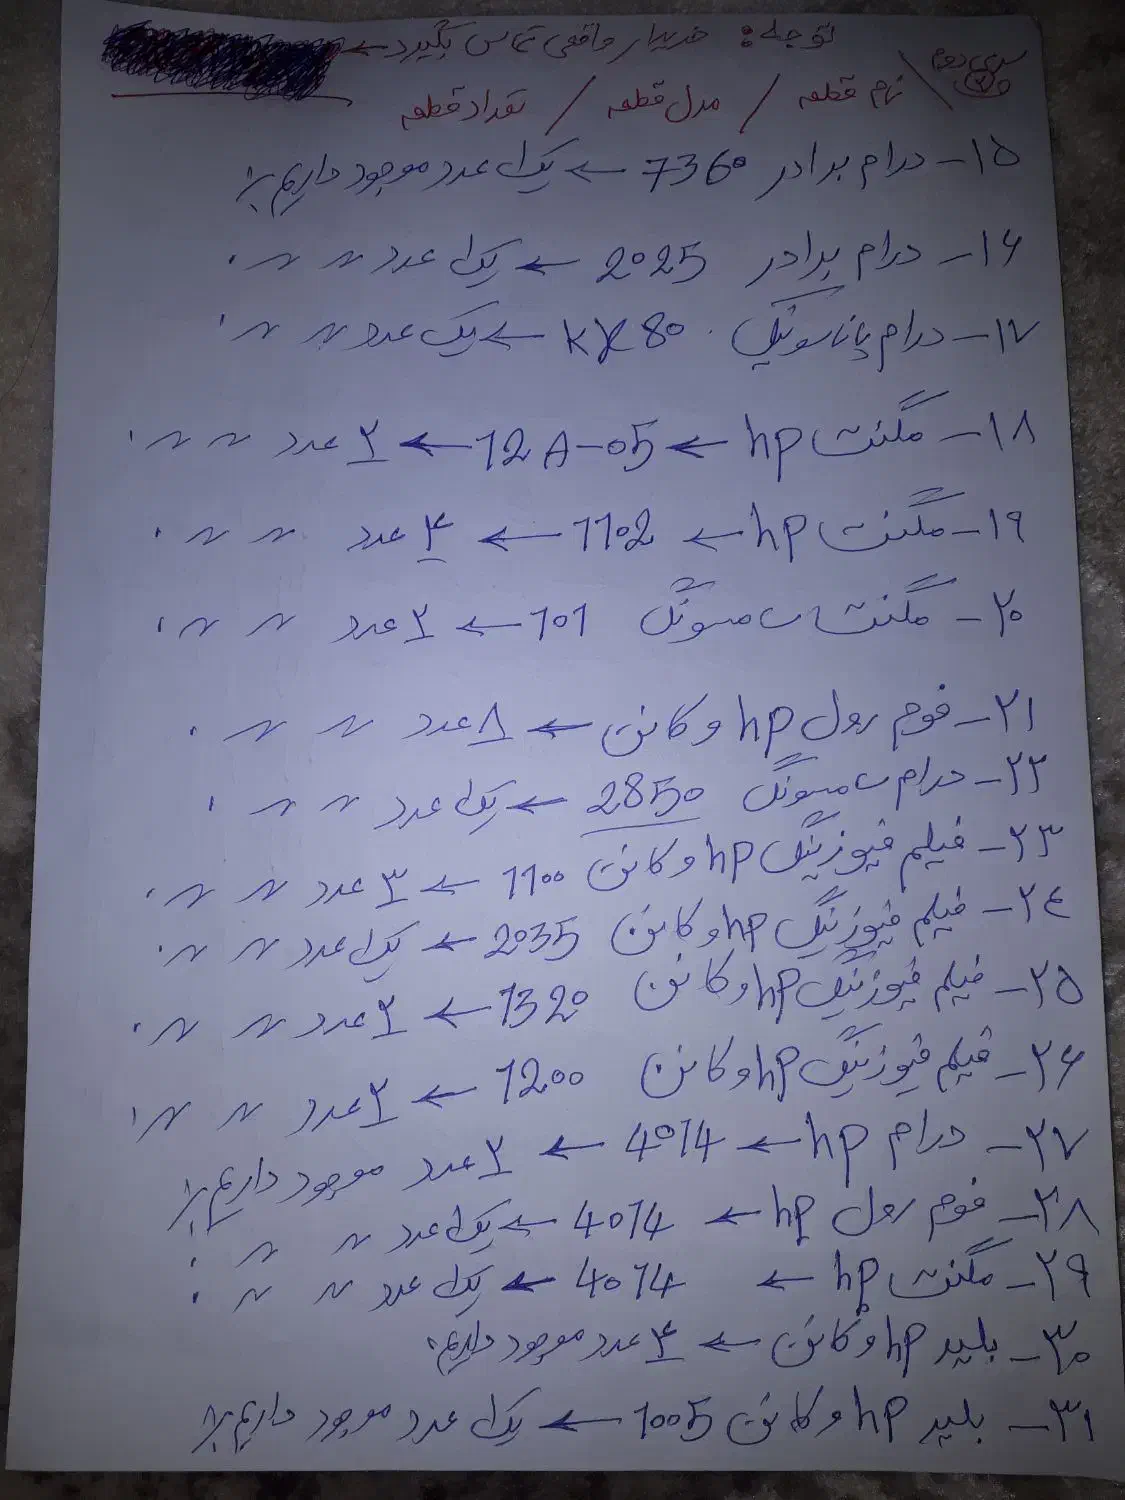 توجه: خریدار واقعی تماس بگیرد ←
سری دوم ۲
نام قطعه / مدل قطعه / تعداد قطعه
۱۵- درام برادر 7360 ← یک عدد موجود داریم
۱۶- درام برادر 2025 ← یک عدد 〃 〃 .
۱۷- درام پاناسونیک . KX80 ← یک عدد 〃 〃 .
۱۸- مگنت hp ← 12A-05 ← ۲ عدد 〃 〃 .
۱۹- مگنت hp ← 1102 ← ۴ عدد 〃 〃 .
۲۰- مگنت سامسونگ 101 ← ۲ عدد 〃 〃 .
۲۱- فوم رول hp و کانن ← ۸ عدد 〃 〃 .
۲۲- درام سامسونگ 2850 ← یک عدد 〃 〃 .
۲۳- فیلم فیوزینگ hp و کانن 1100 ← ۳ عدد 〃 〃 .
۲۴- فیلم فیوزینگ hp و کانن 2035 ← یک عدد 〃 〃 .
۲۵- فیلم فیوزینگ hp و کانن 1320 ← ۲ عدد 〃 〃 .
۲۶- فیلم فیوزینگ hp و کانن 1200 ← ۲ عدد 〃 〃 .
۲۷- درام hp ← 4014 ← ۲ عدد موجود داریم
۲۸- فوم رول hp ← 4014 ← یک عدد 〃 〃 .
۲۹- مگنت hp ← 4014 ← یک عدد 〃 〃 .
۳۰- بلید hp و کانن ← ۴ عدد موجود داریم.
۳۱- بلید hp و کانن 1005 ← یک عدد موجود داریم